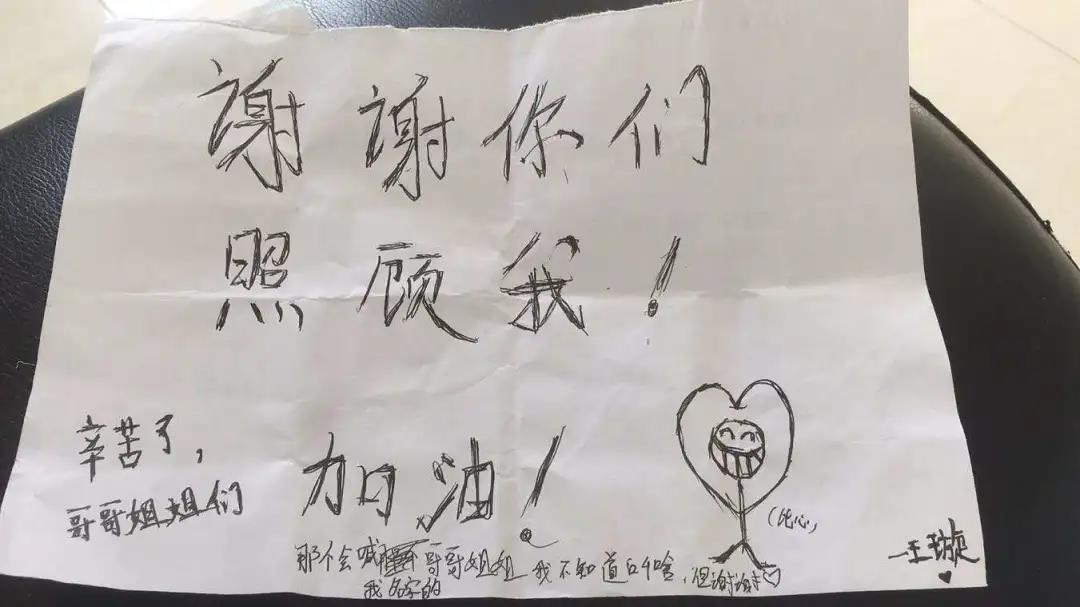 谢谢你们
照顾我！
辛苦了，
哥哥姐姐们
加油！
（比心）
那个会喊我名字的哥哥姐姐 我不知道叫啥，但谢谢♡
—王璇